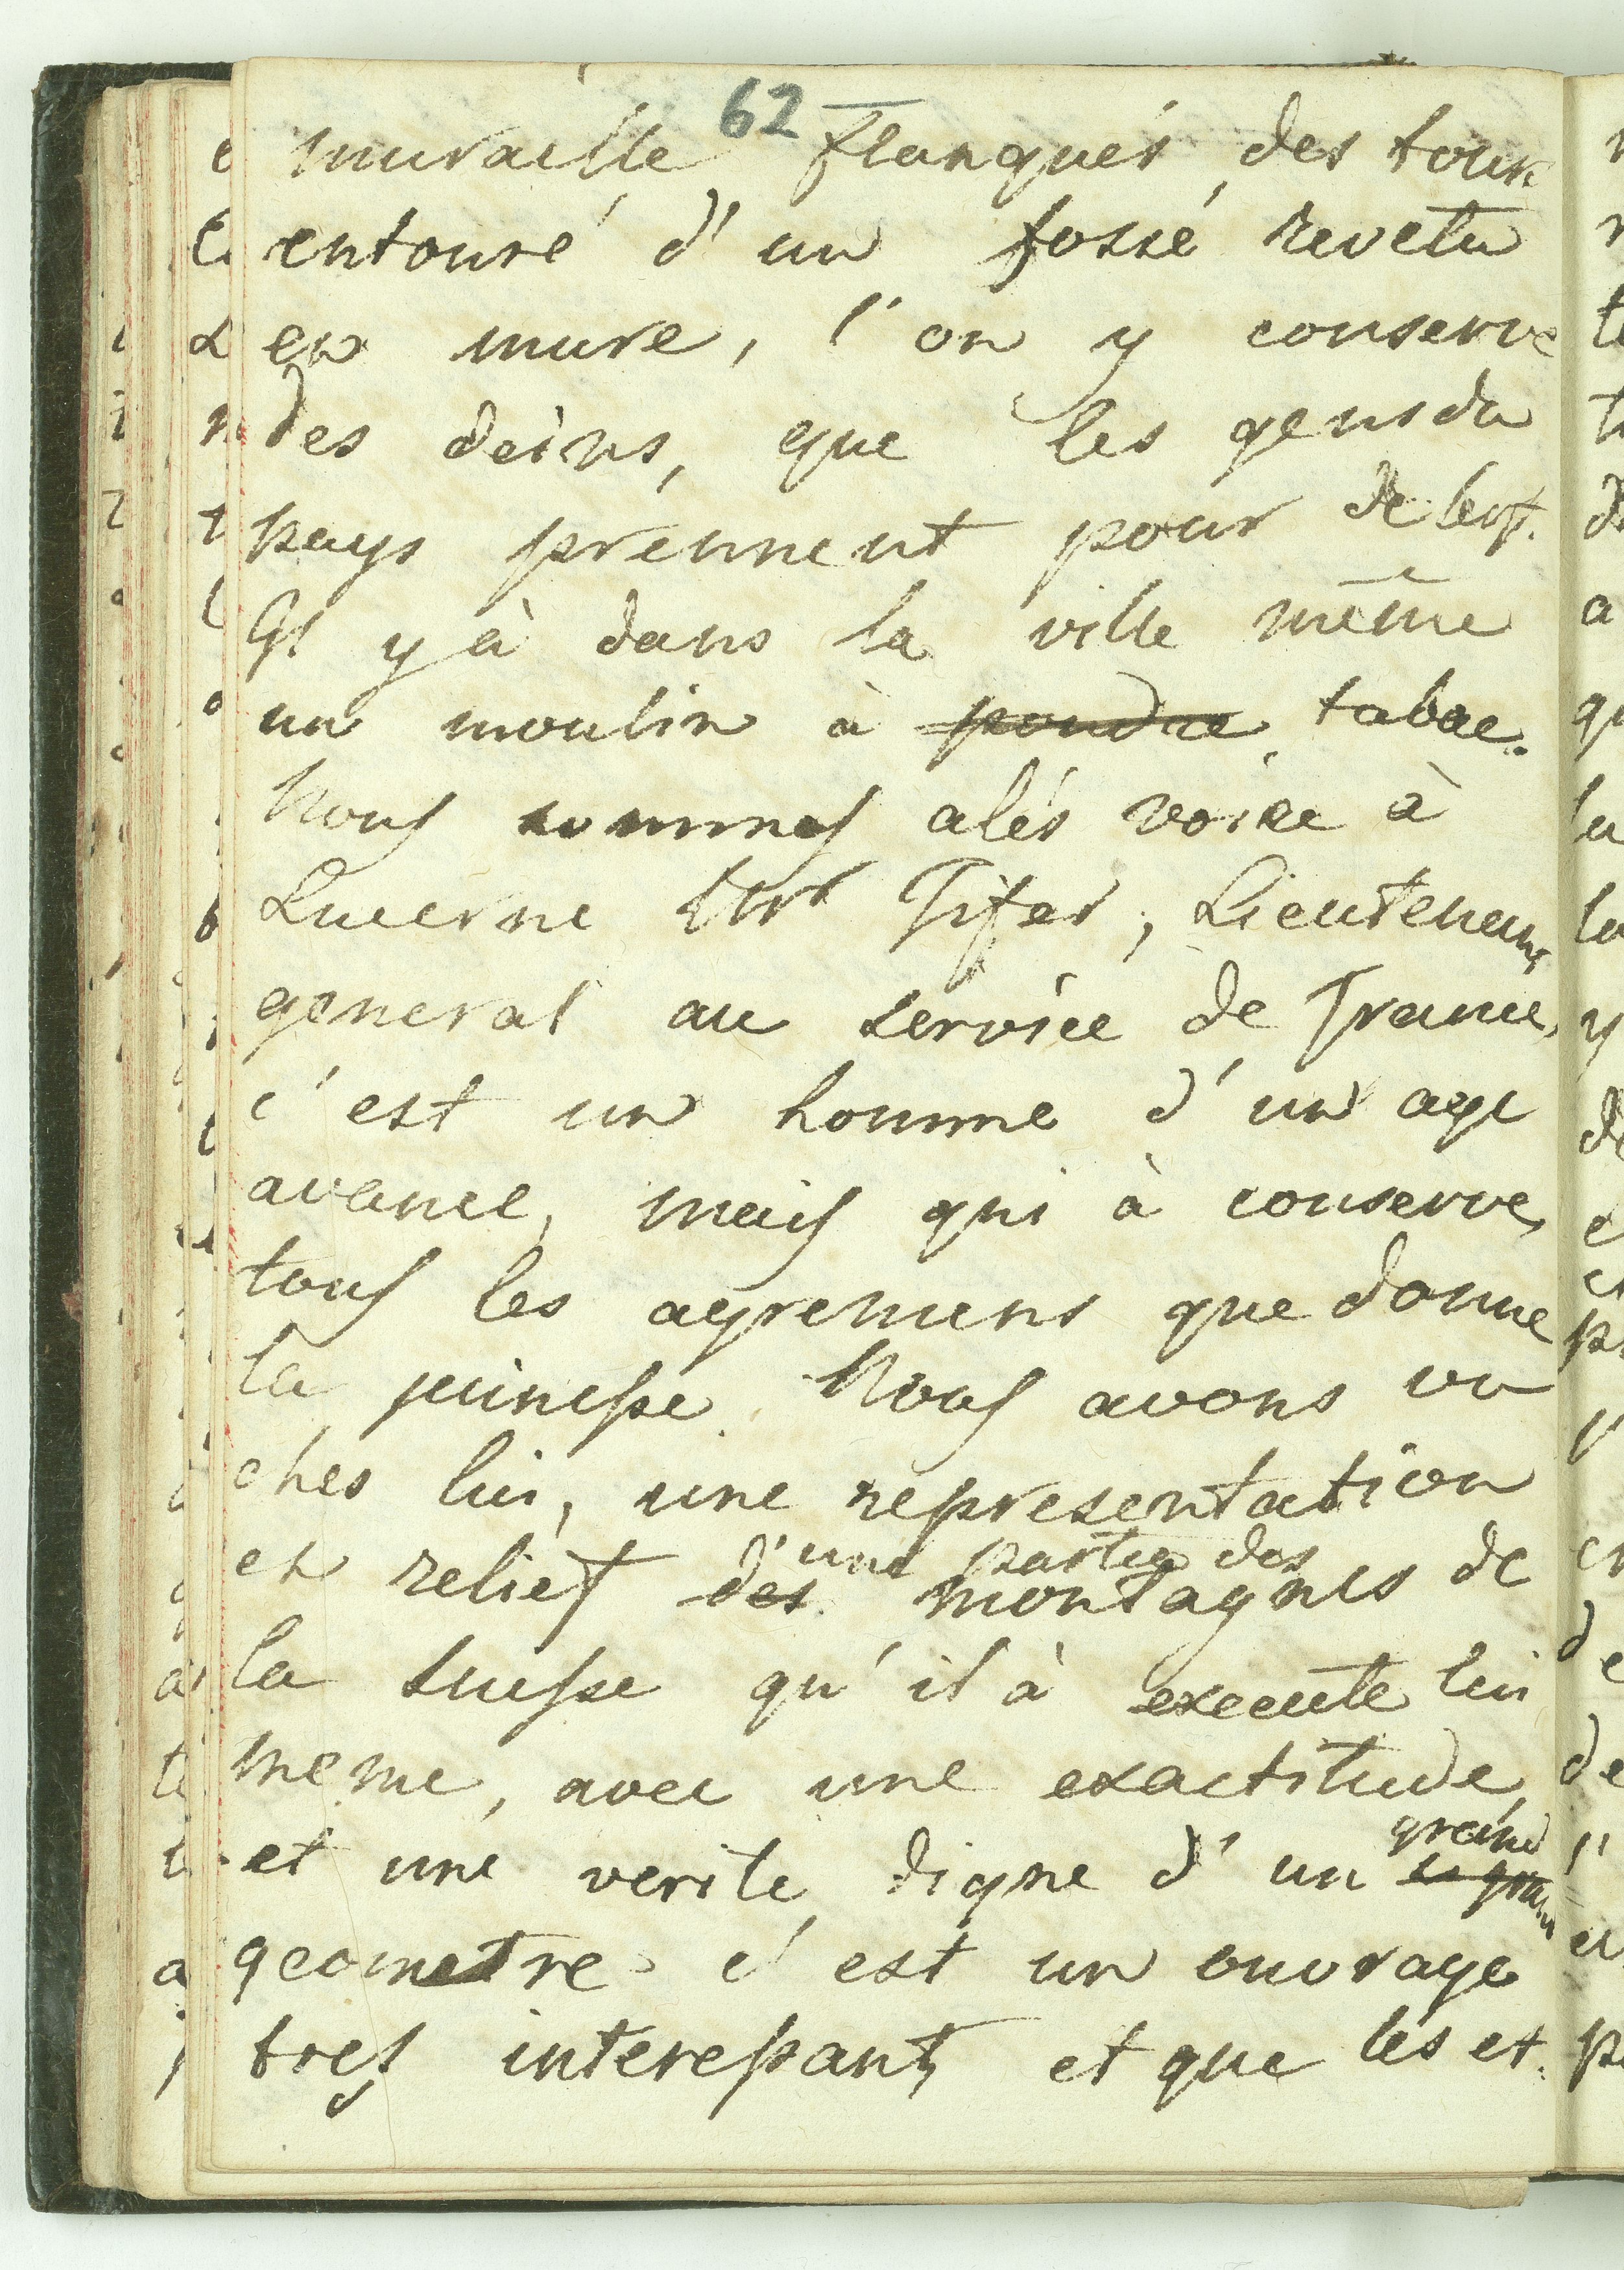 62
muraille flanqués des tours
entouré d'un fossé revetu
en mure, l'on y conserve
des deins, que les gens du
pays prennent pour de
Il y à dans la ville même
un moulin à poudre tabac.
Nous sommes alés voire à
Lucerne Mr Fifer, Lieutenant
general au service de France,
c'est un homme d'un age
avance, mais qui à conserve
tous les agremens que donne
la jeunesse. Nous avons vu
ches lui, une representation
d'une partie des
en relief des montagnes de
la Suisse qu'il à execute lui
meme, avec une exactitude,
grand
et une verite digne d'un
geometre c'est un ouvrage
tres interessant, et que les et.